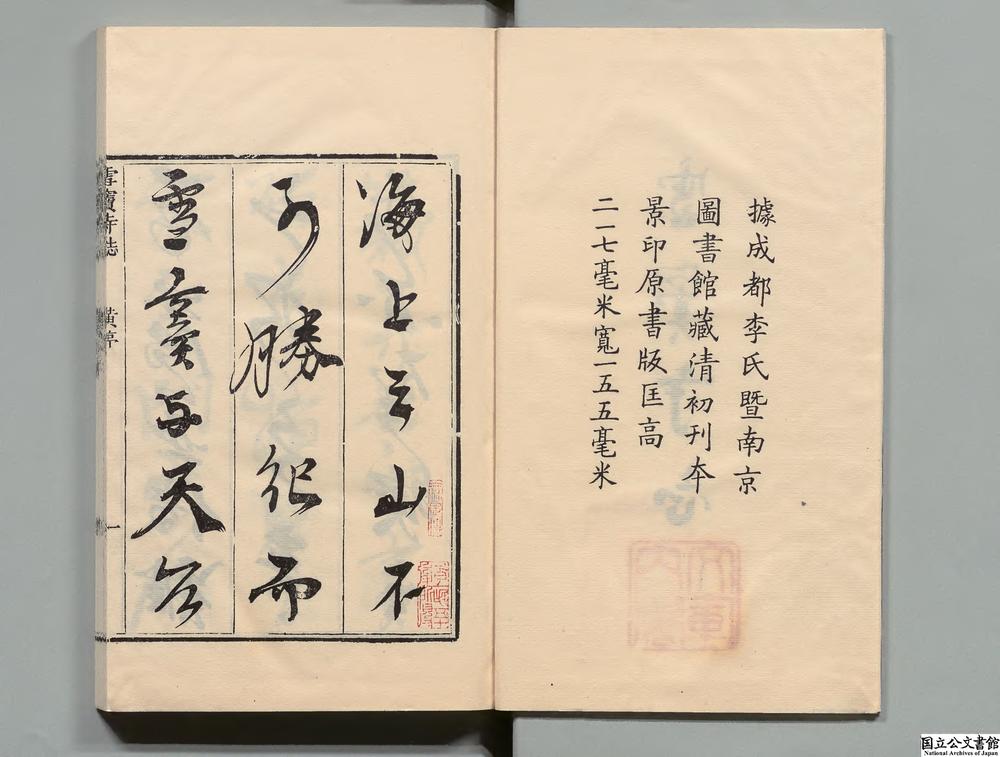 據成都李氏暨南京
圖書館藏清初刊本
景印原書版匡高
二一七毫米寬一五五毫米
海上三山不
可勝紀而
雪竇与天台
雪竇寺誌
一
国立公文書館
National Archives of Japan